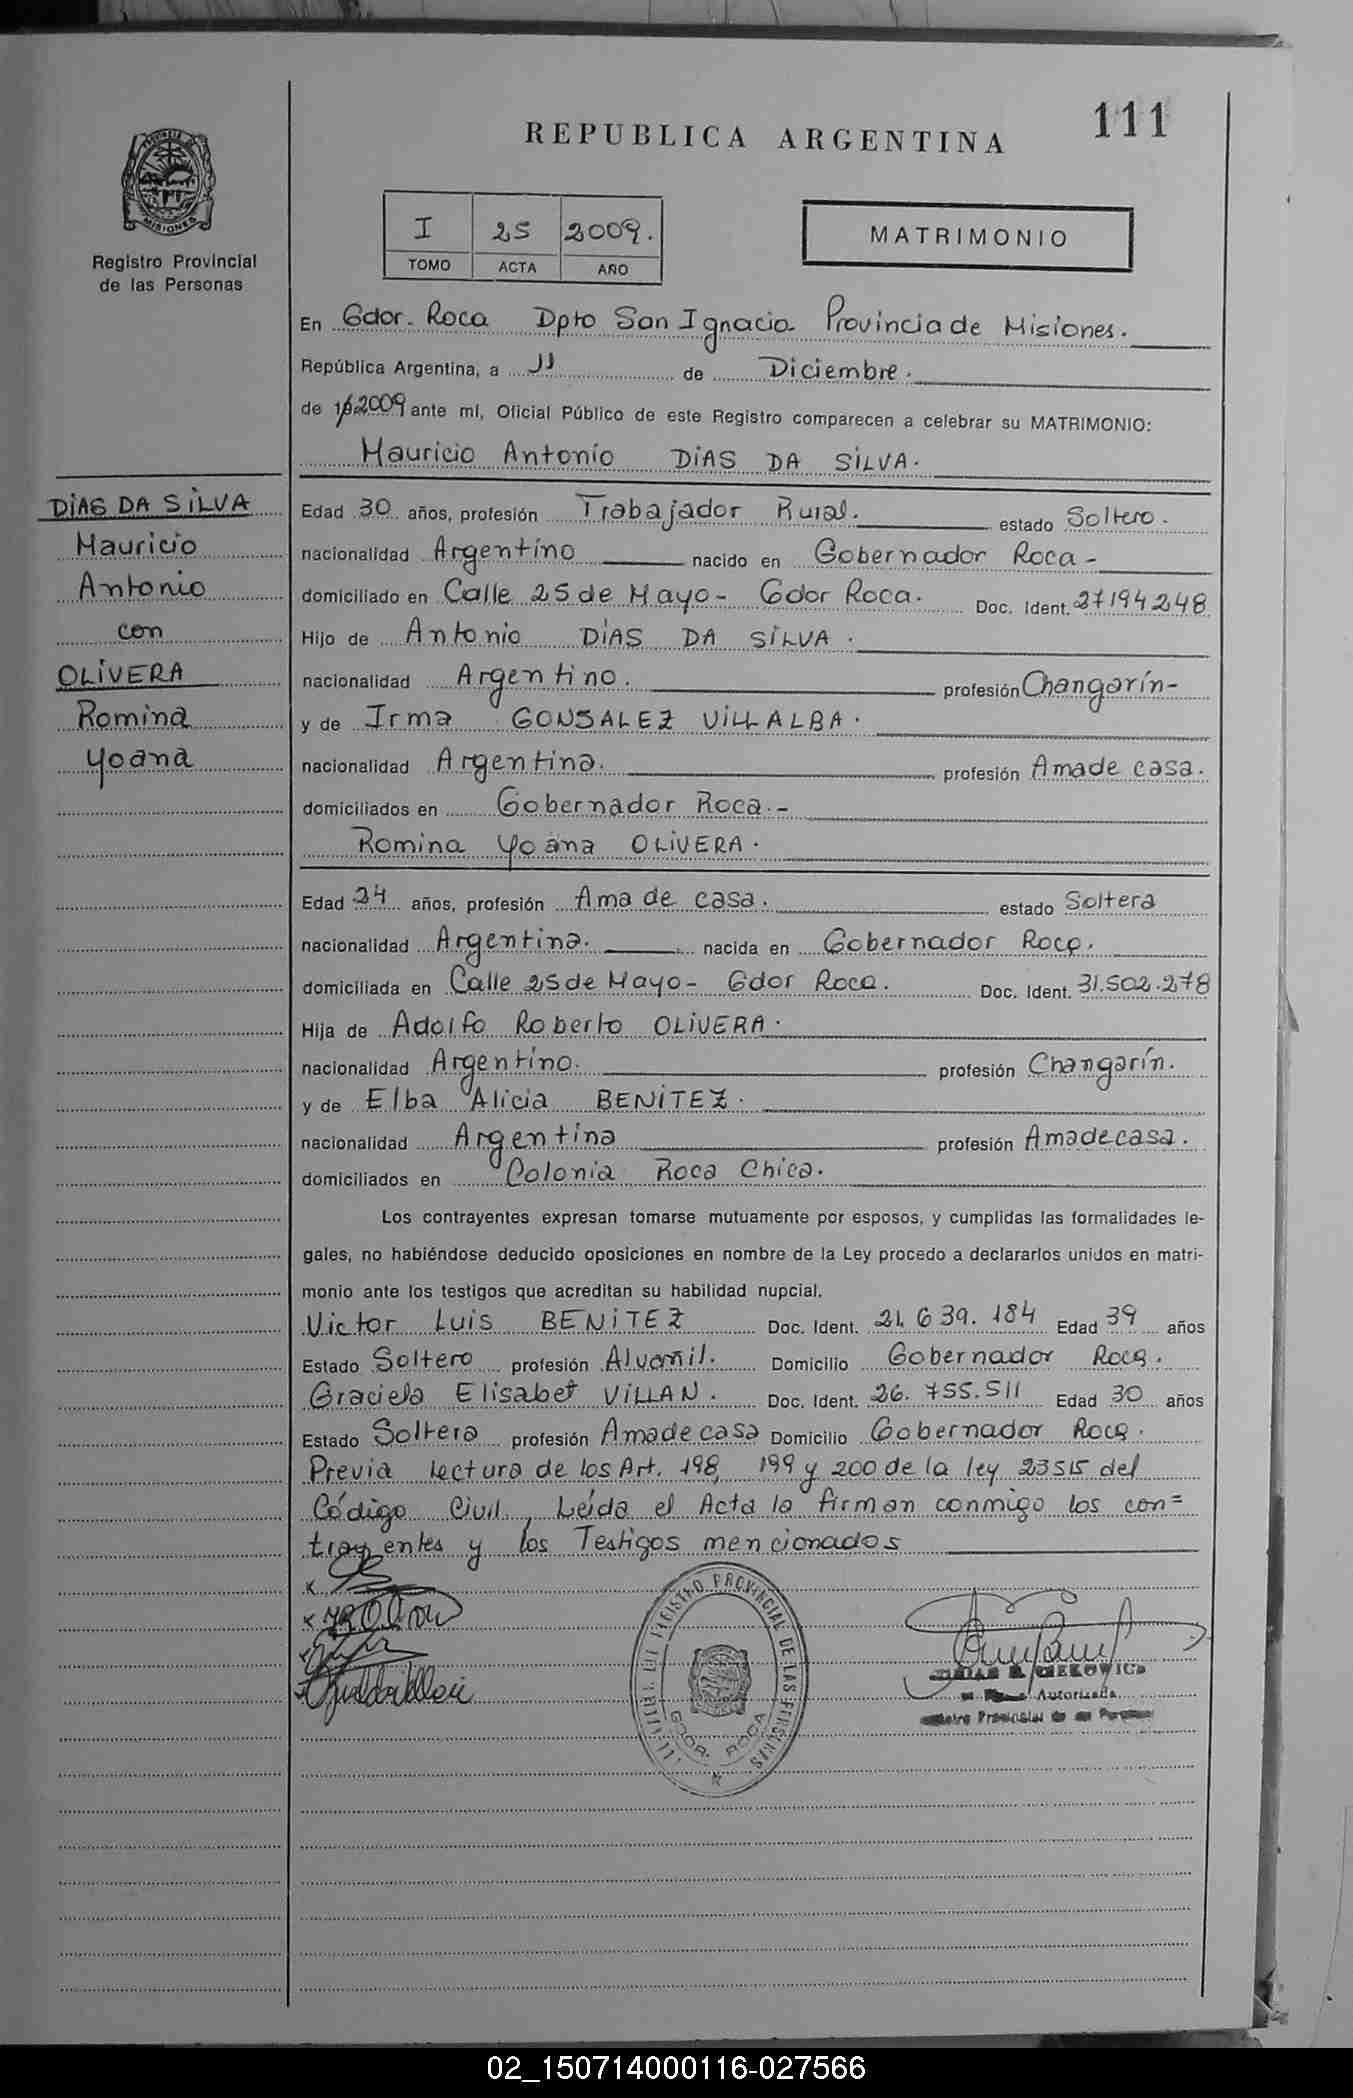 111
REPUBLICA ARGENTINA
PROVINCIA DE
MISIONES
Registro Provincial
de las Personas
I 25 2009.
TOMO ACTA AÑO
MATRIMONIO
En Gdor. Roca Dpto San Ignacio Provincia de Misiones.
República Argentina, a 11 de Diciembre.
de 2009 ante mí, Oficial Público de este Registro comparecen a celebrar su MATRIMONIO:
Mauricio Antonio DiAS DA SiLVA.
DiAS DA SiLVA
Mauricio
Antonio
con
OLiVERA
Romina
Yoana
Edad 30 años, profesión Trabajador Rural. estado Soltero.
nacionalidad Argentino nacido en Gobernador Roca-
domiciliado en Calle 25 de Mayo- Gdor Roca. Doc. Ident. 27194248
Hijo de Antonio DiAS DA SiLVA.
nacionalidad Argentino. profesión Changarín-
y de Irma GONSALEZ ViLLALBA.
nacionalidad Argentina. profesión Ama de casa.
domiciliados en Gobernador Roca.-
Romina Yoana OLiVERA.
Edad 24 años, profesión Ama de casa. estado Soltera
nacionalidad Argentina. nacida en Gobernador Roca.
domiciliada en Calle 25 de Mayo- Gdor Roca. Doc. Ident. 31.502.278
Hija de Adolfo Roberto OLiVERA.
nacionalidad Argentino. profesión Changarín.
y de Elba Alicia BENiTEZ.
nacionalidad Argentina profesión Ama de casa.
domiciliados en Colonia Roca Chica.
Los contrayentes expresan tomarse mutuamente por esposos, y cumplidas las formalidades le-
gales, no habiéndose deducido oposiciones en nombre de la Ley procedo a declararlos unidos en matri-
monio ante los testigos que acreditan su habilidad nupcial.
Victor Luis BENiTEZ Doc. Ident. 21.639.184 Edad 39 años
Estado Soltero profesión Alvañil. Domicilio Gobernador Roca.
Graciela Elisabet ViLLAN. Doc. Ident. 26.755.511 Edad 30 años
Estado Soltera profesión Ama de casa Domicilio Gobernador Roca.
Previa lectura de los Art. 198, 199 y 200 de la ley 23515 del
Código Civil, Leída el Acta la firman conmigo los con=
trayentes y los Testigos mencionados
REGISTRO PROVINCIAL DE LAS PERSONAS
GDOR. ROCA
Autorizada
Registro Provincial de las Personas
02_150714000116-027566